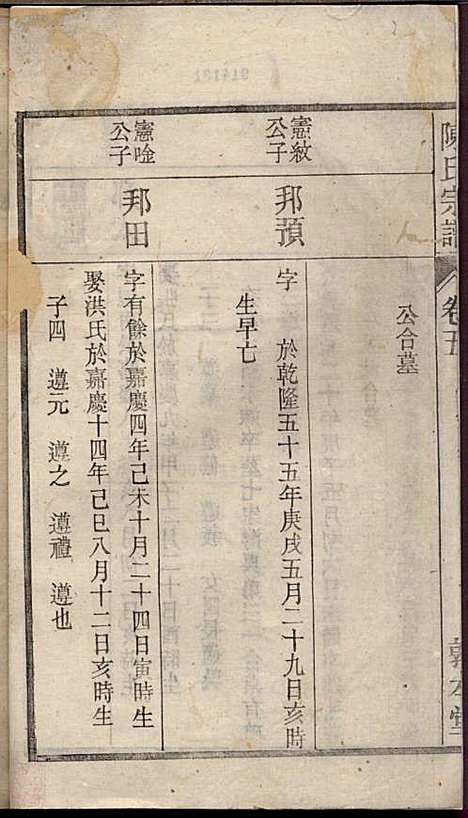 陳氏宗譜
卷五
敦本堂
公合墓
憲紋
公子
邦蘋
字 於乾隆五十五年庚戌五月二十九日亥時
生早亡
憲唫
公子
邦田
字有餘於嘉慶四年己未十月二十四日寅時生
娶洪氏於嘉慶十四年己巳八月十二日亥時生
子四 遵元 遵之 遵禮 遵也